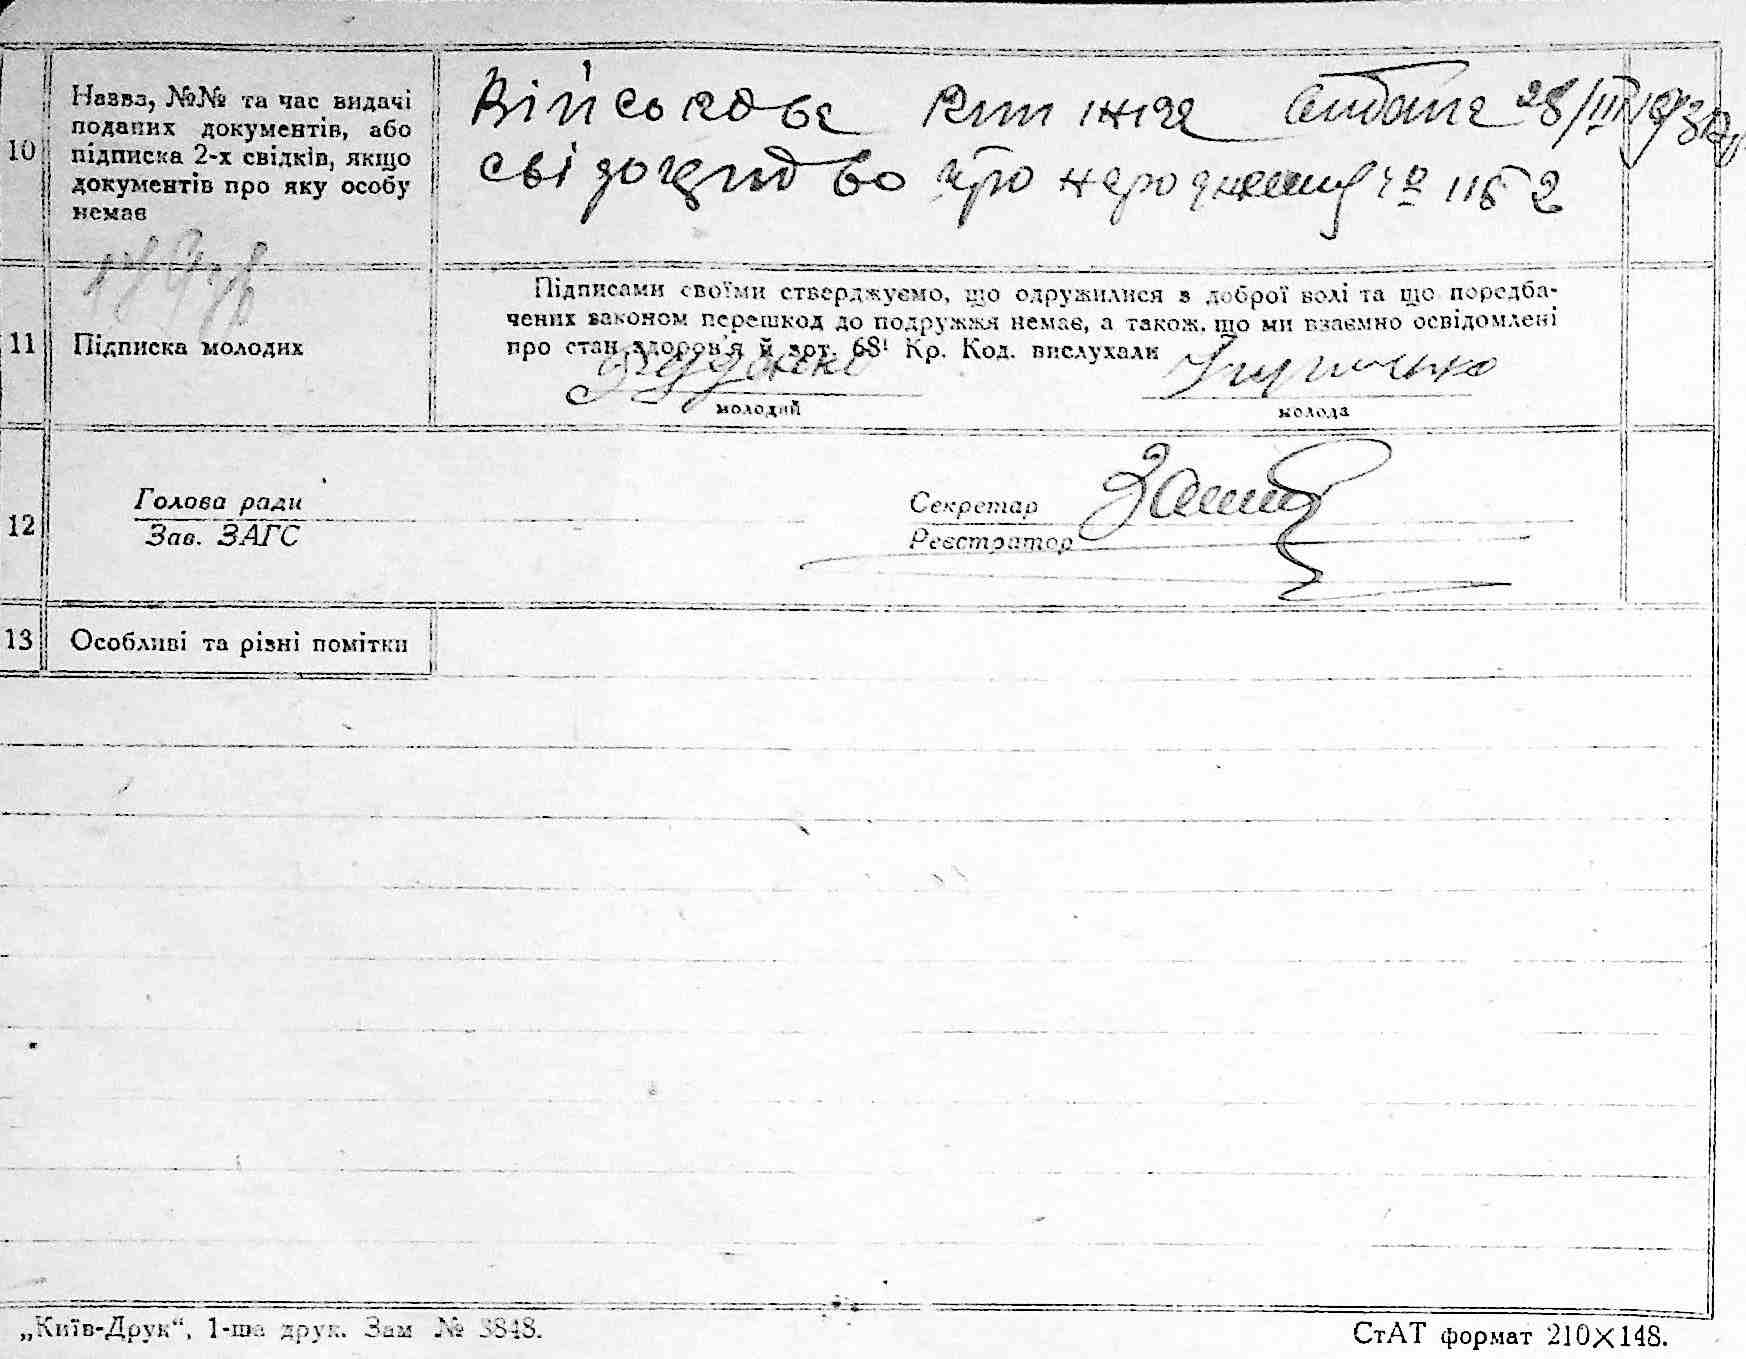 10
Назва, №№ та час видачі
поданих документів, або
підписка 2-х свідків, якщо
документів про яку особу
немає
Військова книжка видана 28/III 193
свідоцтво про народження №
11
Підписка молодих
Підписами своїми стверджуємо, що одружилися з доброї волі та що передба-
чених законом перешкод до подружжя немає, а також, що ми взаємно освідомлені
про стан здоров'я й арт. 68¹ Кр. Код. вислухали
молодий
молода
12
Голова ради
Зав. ЗАГС
Секретар
Реєстратор
13
Особливі та різні помітки
„Київ-Друк“, 1-ша друк. Зам № 3848.
СтАТ формат 210×148.